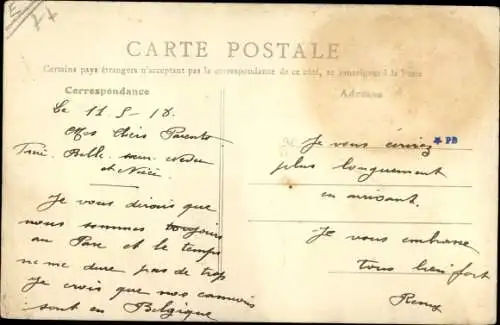 CARTE POSTALE
Certains pays étrangers n'acceptant pas la correspondance de ce côté, se renseigner à la Poste
Correspondance
Adresse
Le 11-5-18.
Mes Chers Parents
Belle sœur Neveu
et Nièce.
Je vous dirais que
nous sommes toujours
au Parc et le temps
ne me dure pas de trop
Je crois que nos camions
sont en Belgique
Je vous écrirez
plus longuement
en arrivant.
Je vous embrasse
tous bien fort
Remy
PB